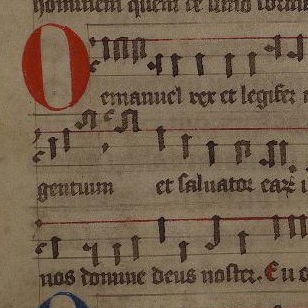 hominem quem de limo formas
O emanuel rex et legifer
gentium et saluator eaꝝ
nos domine deus noster. Eu o